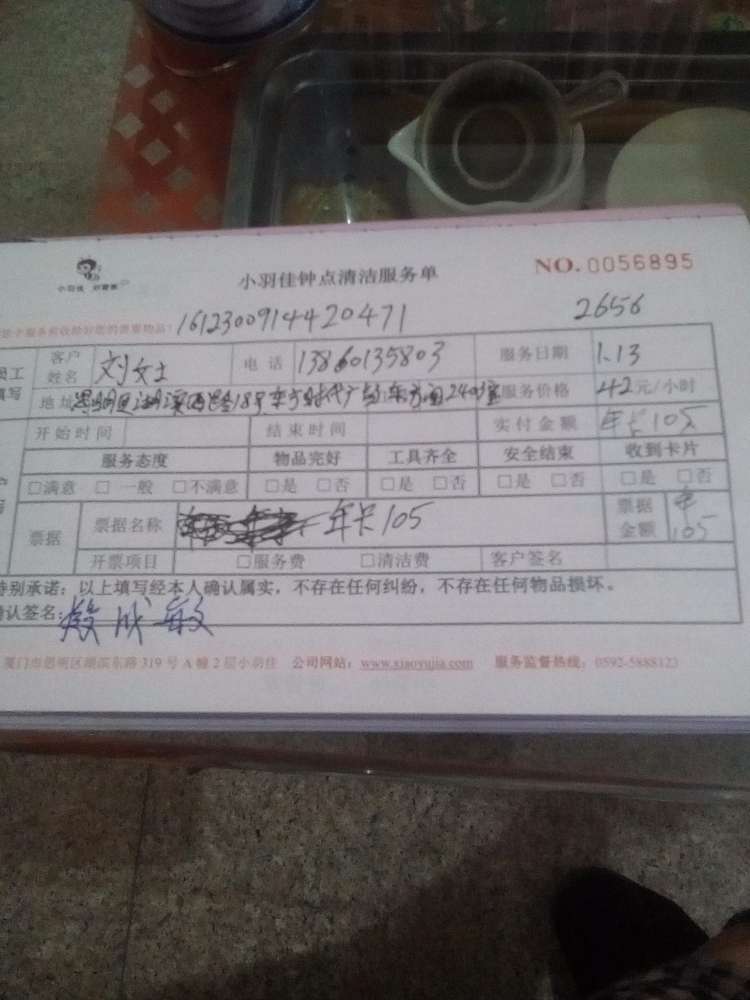 小羽佳 好管家
小羽佳钟点清洁服务单
NO.0056895
1612300914420471
2656
客户姓名 刘女士 电话 13860135803 服务日期 1.13
地址 思明区湖滨西路18号东方时代广场东方阁2403室 服务价格 42元/小时
开始时间 结束时间 实付金额 年卡105
服务态度 物品完好 工具齐全 安全结束 收到卡片
□满意 □一般 □不满意 □是 □否 □是 □否 □是 □否 □是 □否
票据 票据名称 年卡105 票据金额 年105
开票项目 □服务费 □清洁费 客户签名
特别承诺：以上填写经本人确认属实，不存在任何纠纷，不存在任何物品损坏。
确认签名：殷成敏
厦门市思明区湖滨东路319号A幢2层小羽佳 公司网站：www.xiaoyujia.com 服务监督热线：0592-5888123